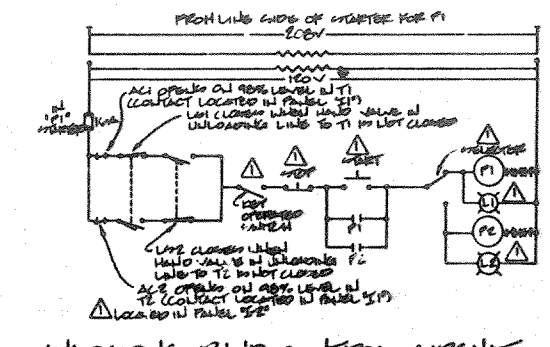 FROM LINE SIDE OF STARTER FOR P1
208V
120V
AC1 OPENS ON 98% LEVEL IN T1
(CONTACT LOCATED IN PANEL "I1")
LS1 CLOSED WHEN HAND VALVE IN
UNLOADING LINE TO T1 IS NOT CLOSED
IN
"P1"
STARTER
SELECTOR
1
STOP
1
START
1
1
P1
1
L1
KEY
OPERATED
SWITCH
P1
P2
P2
1
L2
LS2 CLOSED WHEN
HAND VALVE IN UNLOADING
LINE TO T2 IS NOT CLOSED
AC2 OPENS ON 98% LEVEL IN
T2 (CONTACT LOCATED IN PANEL "I1")
1 LOCATED IN PANEL "I2"